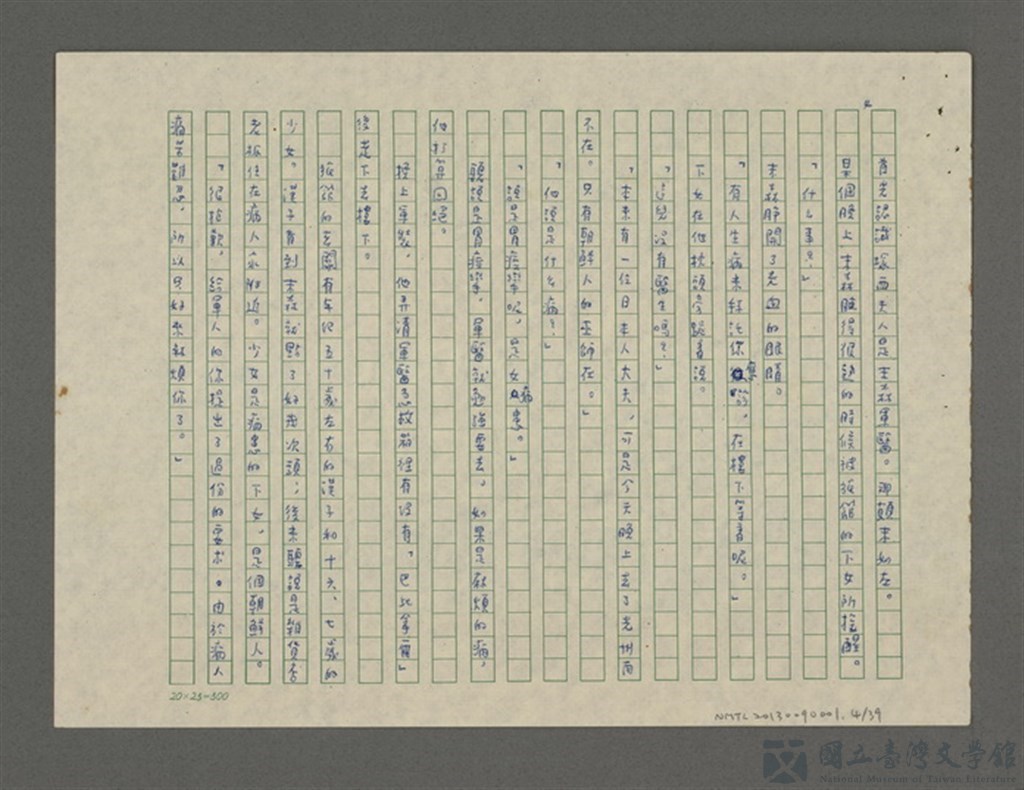 首先認識塚西夫人是末森軍醫。那顛末如左。
某個晚上末森睡得很熟的時候被旅館的下女所搖醒。
「什么事?」
末森睜開了充血的眼睛。
「有人生病來拜託你 診。在樓下等着呢。」
下女在他枕頭旁跪着說。
「這兒沒有醫生嗎?」
「本來有一位日本人大夫,可是今天晚上去了光州而
不在。只有朝鮮人的巫師在。」
「他說是什么病?」
「說是胃痙攣呢,是女病患。」
聽說是胃痙攣,軍醫就勉強要去。如果是麻煩的病,
他打算回絕。
換上軍裝,他弄清軍醫急救箱裡有沒有「巴比拿爾」
後走下去樓下。
旅館的玄關有年紀五十歲左右的漢子和十六、七歲的
少女。漢子看到末森就點了好幾次頭;後來聽說是雜貨店
老板住在病人家附近。少女是病患的下女,是個朝鮮人。
「很抱歉,給軍人的你提出了過份的要求。由於病人
痛苦難忍,所以只好來麻煩你了。」
20×25=500
NMTL20130090001.4/39
國立臺灣文學館
National Museum of Taiwan Literature